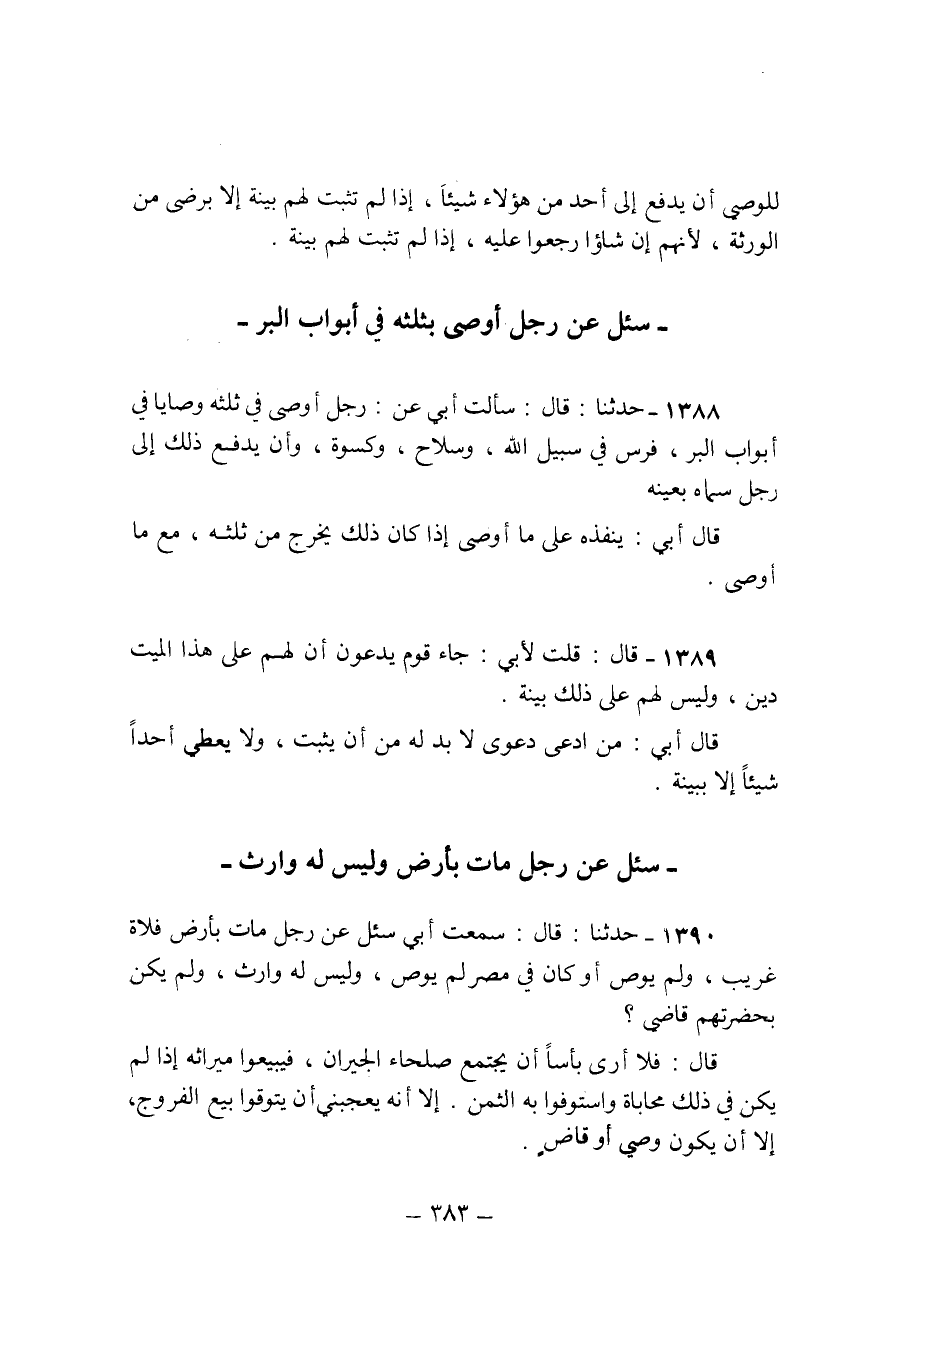 للوصي أن يدفع إلى أحد من هؤلاء شيئاً ، إذا لم تثبت لهم بينة إلا برضى من
الورثة ، لأنهم إن شاؤا رجعوا عليه ، إذا لم تثبت لهم بينة .
ـ سئل عن رجل أوصى بثلثه في أبواب البر ـ
١٣٨٨ ـ حدثنا : قال : سألت أبي عن : رجل أوصى في ثلثه وصايا في
أبواب البر ، فرس في سبيل الله ، وسلاح ، وكسوة ، وأن يدفع ذلك إلى
رجل سماه بعينه
قال أبي : ينفذه على ما أوصى إذا كان ذلك يخرج من ثلثه ، مع ما
أوصى .
١٣٨٩ ـ قال : قلت لأبي : جاء قوم يدعون أن لهم على هذا الميت
دين ، وليس لهم على ذلك بينة .
قال أبي : من ادعى دعوى لا بد له من أن يثبت ، ولا يعطي أحداً
شيئاً إلا ببينة .
ـ سئل عن رجل مات بأرض وليس له وارث ـ
١٣٩٠ ـ حدثنا : قال : سمعت أبي سئل عن رجل مات بأرض فلاة
غريب ، ولم يوص أو كان في مصر لم يوص ، وليس له وارث ، ولم يكن
بحضرتهم قاضي ؟
قال : فلا أرى بأساً أن يجتمع صلحاء الجيران ، فيبيعوا ميراثه إذا لم
يكن في ذلك محاباة واستوفوا به الثمن . إلا أنه يعجبني أن يتوقوا بيع الفروج،
إلا أن يكون وصي أو قاضٍ .
ـ ٣٨٣ ـ